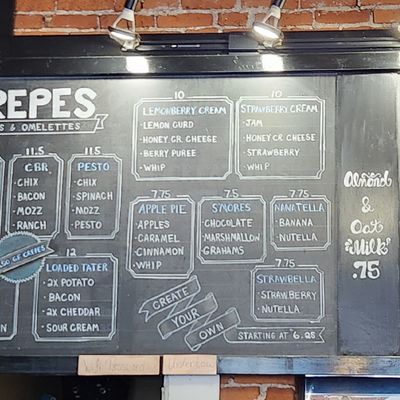 REPES
S & OMELETTES
11.5
CBR
· CHIX
BACON
MOZZ
RANCH
11.5
PESTO
· CHIX
· SPINACH
· MOZZ
· PESTO
SO OF CREPES
12
LOADED TATER
· 2X POTATO
· BACON
· 2X CHEDDAR
· SOUR CREAM
10
LEMONBERRY CREAM
· LEMON CURD
· HONEY CR CHEESE
· BERRY PUREE
· WHIP
10
STRAWBERRY CREAM
· JAM
· HONEY CR CHEESE
· STRAWBERRY
· WHIP
7.75
APPLE PIE
· APPLES
· CARAMEL
· CINNAMON
· WHIP
7.5
S'MORES
· CHOCOLATE
· MARSHMALLOW
· GRAHAMS
7.75
NANITELLA
· BANANA
· NUTELLA
7.75
STRAWBELLA
· STRAWBERRY
· NUTELLA
CREATE
YOUR
OWN
STARTING AT 6.25
Almond
&
Oat
Milk
.75